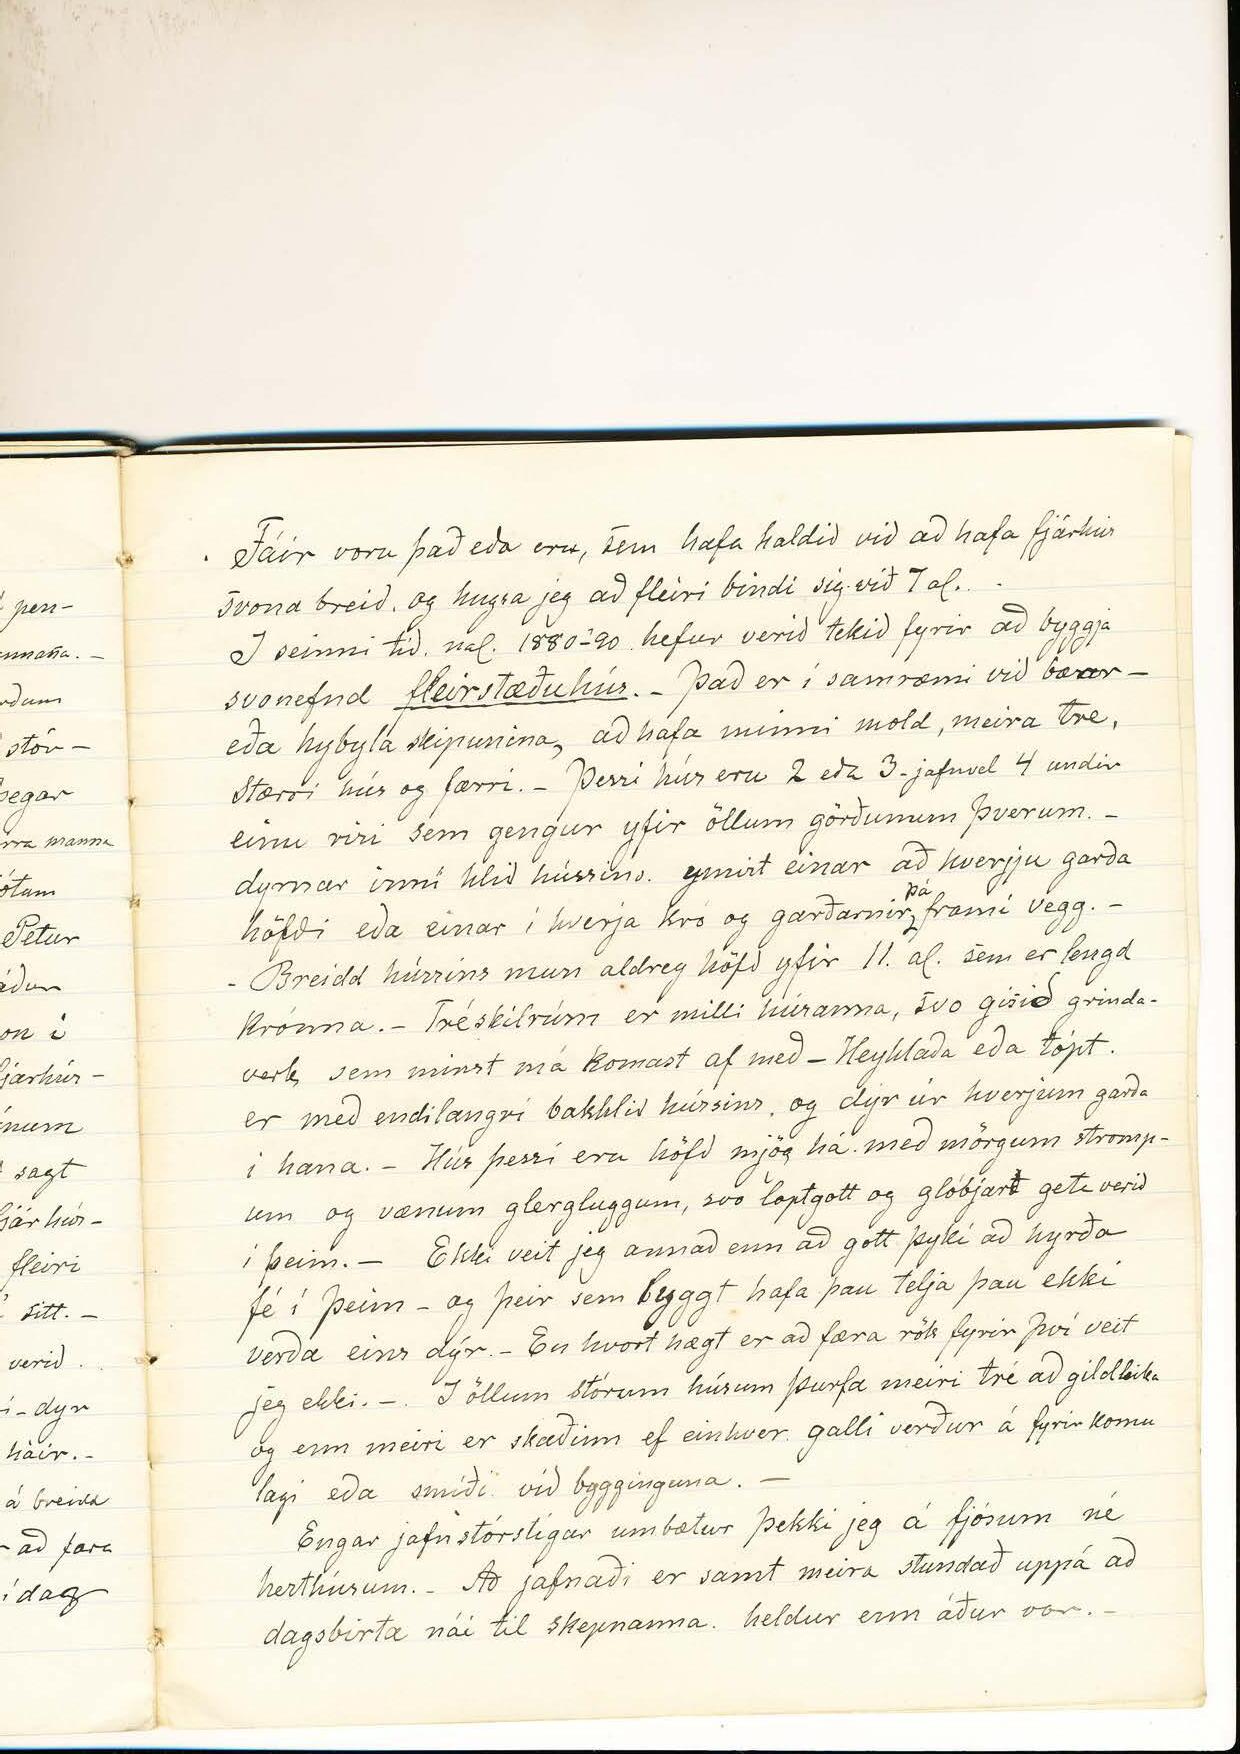 pen-
stór-
þegar
manna
Petur
on í
fjárhús-
sagt
fjárhús-
fleiri
sitt. -
verið
- dyr
háir. -
á breidd
að fara
í dag
Fáir voru það eða eru, sem hafa haldið við að hafa fjárhús
svona breið. og hugsa jeg að fleiri bindi sig við 7 al. -
I seinni tíð. nál. 1880-90 hefur verið tekið fyrir að byggja
svonefnd fleirstæðuhús. - Það er í samræmi við bæar-
eða hybyla skipunina, að hafa minni mold, meira tre,
stærri hús og færri. - Þessi hús eru 2 eða 3 - jafnvel 4 undir
einu risi sem gengur yfir öllum görðunum þverum. -
dyrnar inní hlið hússins. ymist einar að hverjju garða
höfði eða einar í hverja kró og garðarnir þá framí vegg. -
- Breidd hússins mun aldreg höfð yfir 11. al. sem er lengd
krónna. - Tréskilrúm er milli húsanna, svo gisið grinda-
verk sem minst má komast af með - Heyhlaða eða tópt.
er með endilangri bakhlið hússins. og dýr úr hverjum garða
i hana. - Hús þessi eru höfð mjög há. með mörgum stromp-
um og vænum glergluggum, svo loptgott og glóbjart geta verið
í þeim. - Ekki veit jeg annað enn að gott þyki að hyrða
fé í þeim - og þeir sem byggt hafa þau telja þau ekki
verða eins dýr. - En hvort hægt er að færa rök fyrir því veit
jeg ekki. -. I öllum stórum húsum þurfa meiri tré að gildleika
og enn meiri er skæðinn ef einhver galli verður á fyrirkomu
lagi eða smíði við bygginguna. -
Engar jafn stórstígar umbætur þekki jeg á fjósum né
hesthúsum. - Að jafnaði er samt meira stundað uppá að
dagsbirta nái til skepnanna. heldur enn áður var. -